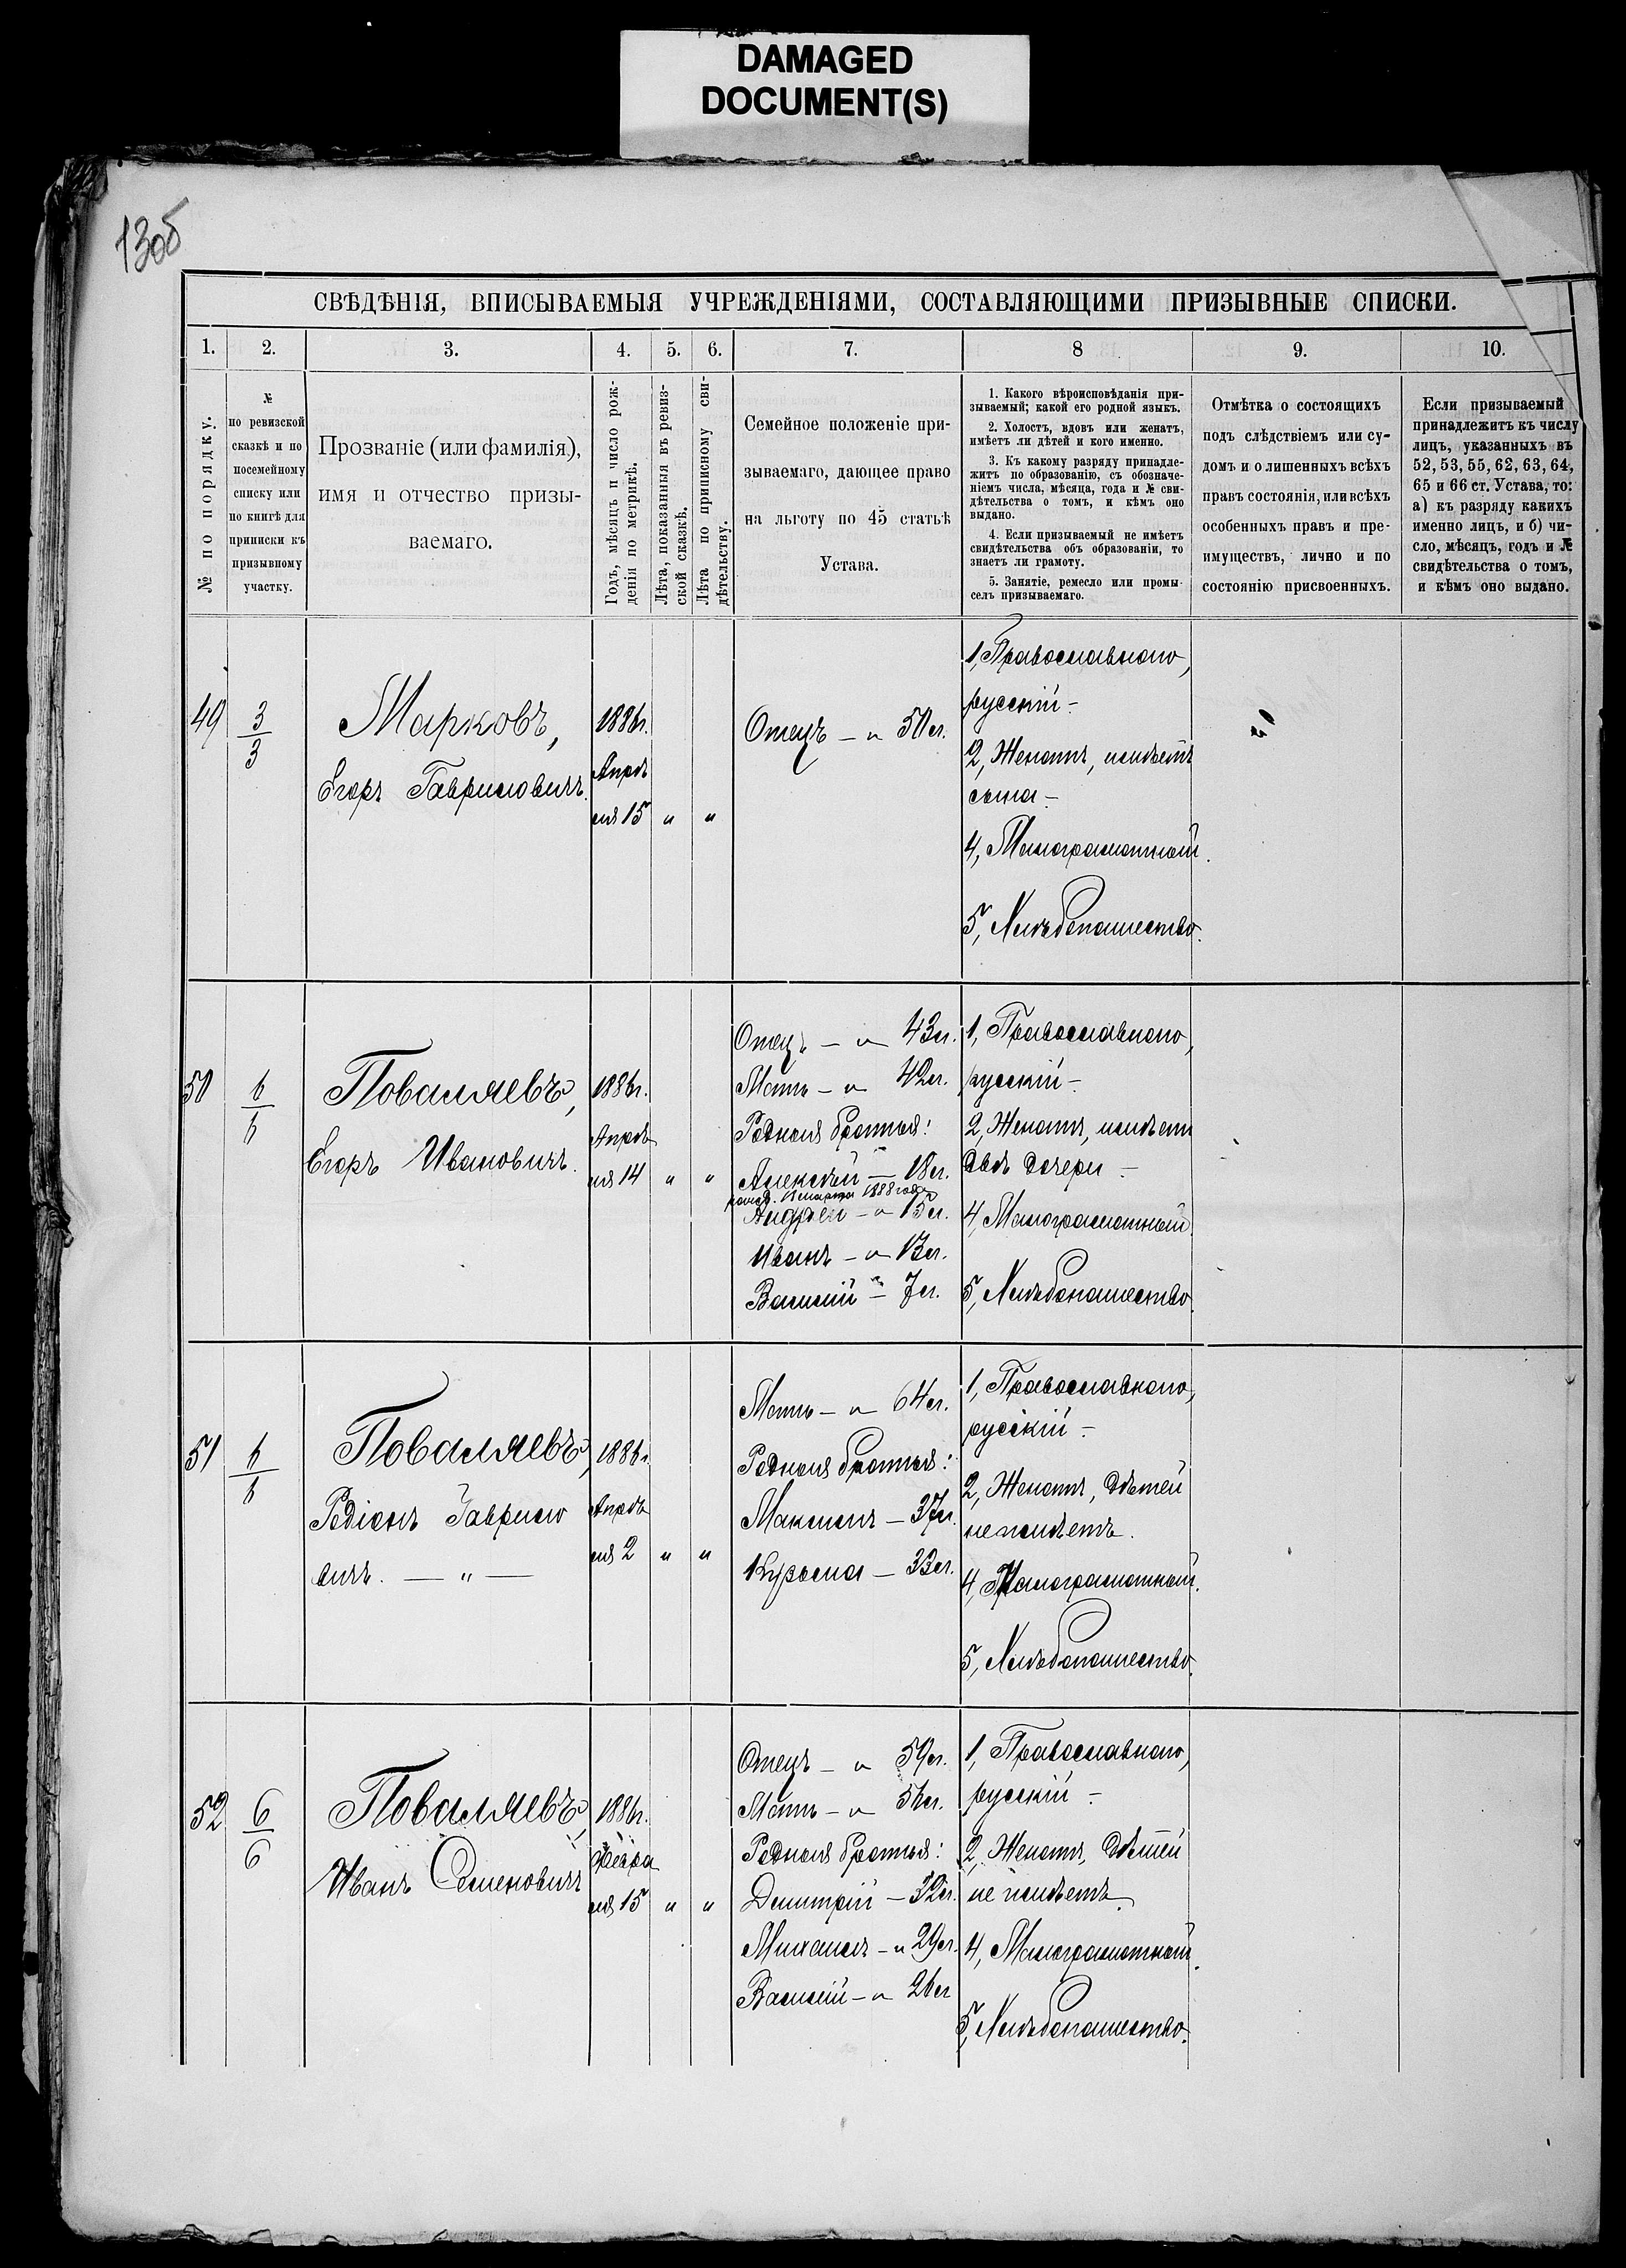 DAMAGED
DOCUMENT(S)
130б
СВѢДѢНІЯ, ВПИСЫВАЕМЫЯ УЧРЕЖДЕНІЯМИ, СОСТАВЛЯЮЩИМИ ПРИЗЫВНЫЕ СПИСКИ.
1. 2. 3. 4. 5. 6. 7. 8 9. 10.
№ по порядку.
№
по ревизской
сказкѣ и по
посемейному
списку или
по книгѣ для
приписки къ
призывному
участку.
Прозваніе (или фамилія),
имя и отчество призы-
ваемаго.
Годъ, мѣсяцъ и число рож-
денія по метрикѣ.
Лѣта, показанныя въ ревиз-
ской сказкѣ.
Лѣта по приписному сви-
дѣтельству.
Семейное положеніе при-
зываемаго, дающее право
на льготу по 45 статьѣ
Устава.
1. Какого вѣроисповѣданія при-
зываемый; какой его родной языкъ.
2. Холостъ, вдовъ или женатъ,
имѣетъ ли дѣтей и кого именно.
3. Къ какому разряду принадле-
житъ по образованію, съ обозначе-
ніемъ числа, мѣсяца, года и № сви-
дѣтельства о томъ, и кѣмъ оно
выдано.
4. Если призываемый не имѣетъ
свидѣтельства объ образованіи, то
знаетъ ли грамоту.
5. Занятіе, ремесло или промы-
селъ призываемаго.
Отмѣтка о состоящихъ
подъ слѣдствіемъ или су-
домъ и о лишенныхъ всѣхъ
правъ состоянія, или всѣхъ
особенныхъ правъ и пре-
имуществъ, лично и по
состоянію присвоенныхъ.
Если призываемый
принадлежитъ къ числу
лицъ, указанныхъ въ
52, 53, 55, 62, 63, 64,
65 и 66 ст. Устава, то:
а) къ разряду какихъ
именно лицъ, и б) чи-
сло, мѣсяцъ, годъ и №
свидѣтельства о томъ,
и кѣмъ оно выдано.
49
3
3
Марковъ,
Егоръ Гавриловичъ.
1886г.
Апрѣ
ля 15 " "
Отецъ — " 50л.
1, Православнаго,
русскій —
2, Женатъ, имѣетъ
сына —
4, Малограмотный.
5, Хлѣбопашество.
50
6
6
Поваляевъ,
Егоръ Ивановичъ.
1886г.
Апрѣ
ля 14 " "
Отецъ — " 43л.
Мать — " 42л.
Родныя братья:
Алексѣй — 18л.
Андрей — " 15л.
Иванъ — " 13л.
Василій " — 7л.
1, Православнаго,
русскій —
2, Женатъ, имѣетъ
двѣ дочери —
4, Малограмотный
5, Хлѣбопашество.
51
6
6
Поваляевъ,
Родіонъ Гаврило
вичъ. — " —
1886г.
Апрѣ
ля 2 " "
Мать — " 64л.
Родныя братья:
Максимъ — 37л.
Кузьма — 33л.
1, Православнаго,
русскій —
2, Женатъ, дѣтей
не имѣетъ.
4, Малограмотный.
5, Хлѣбопашество.
52
6
6
Поваляевъ,
Иванъ Семеновичъ
1886г.
Февра
ля 15 " "
Отецъ — " 59л.
Мать — " 56л.
Родныя братья:
Дмитрій — 32л.
Михаилъ — " 29л.
Василій — " 26л
1, Православнаго,
русскій —
2, Женатъ, дѣтей
не имѣетъ.
4, Малограмотный.
5, Хлѣбопашество.